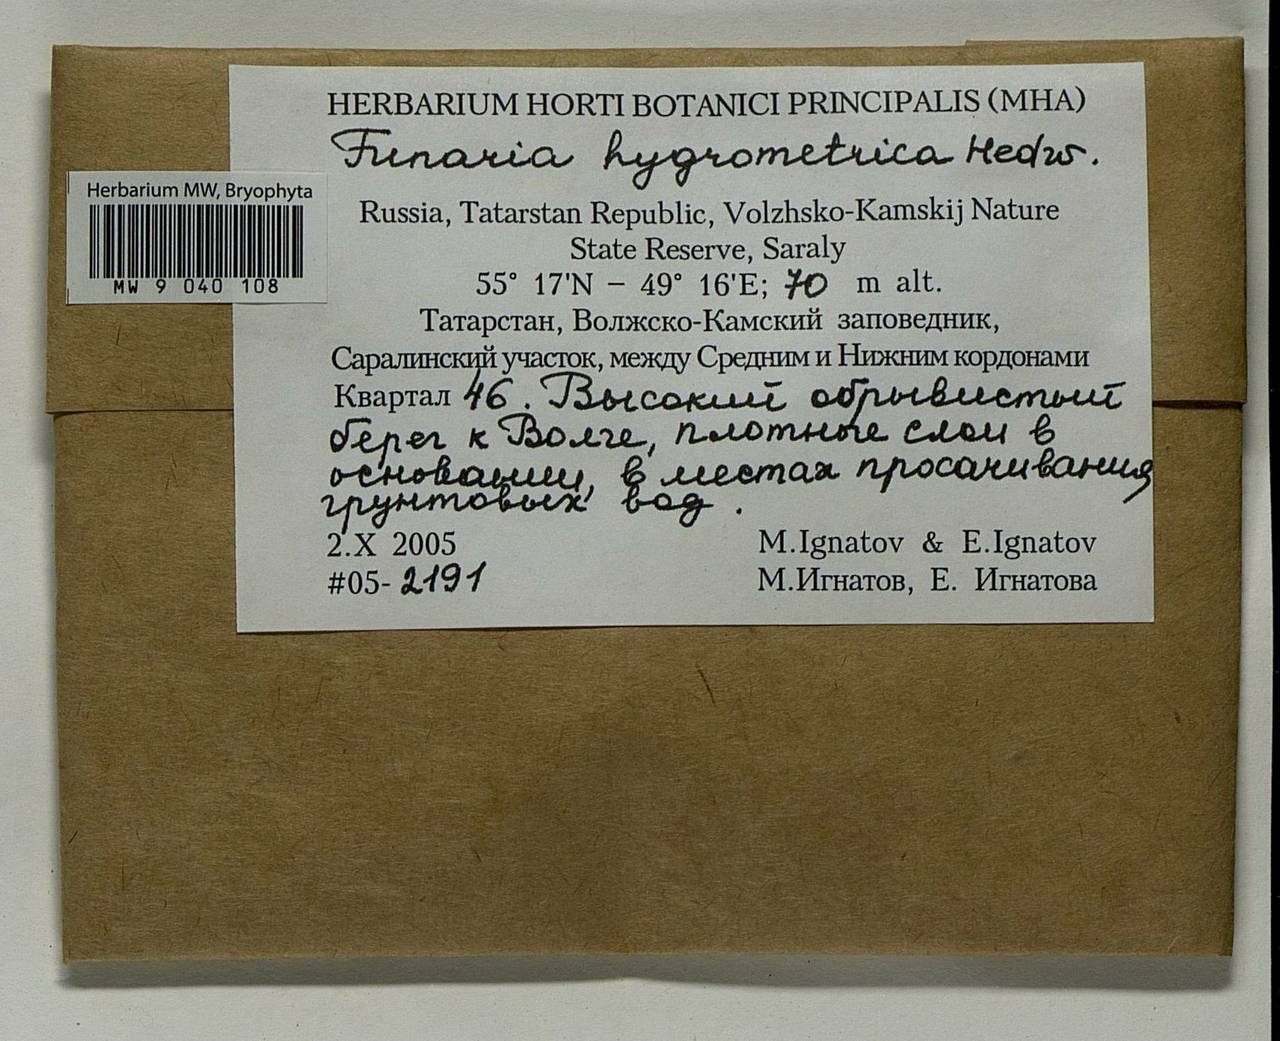 HERBARIUM HORTI BOTANICI PRINCIPALIS (MHA)
Funaria hygrometrica Hedw.
Herbarium MW, Bryophyta
MW 9 040 108
Russia, Tatarstan Republic, Volzhsko-Kamskij Nature
State Reserve, Saraly
55° 17'N – 49° 16'E; 70 m alt.
Татарстан, Волжско-Камский заповедник,
Саралинский участок, между Средним и Нижним кордонами
Квартал 46. Высокий обрывистый
берег к Волге, плотные слои в
основании, в местах просачивания
грунтовых вод.
2.X 2005
M.Ignatov & E.Ignatov
#05-2191
М.Игнатов, Е. Игнатова